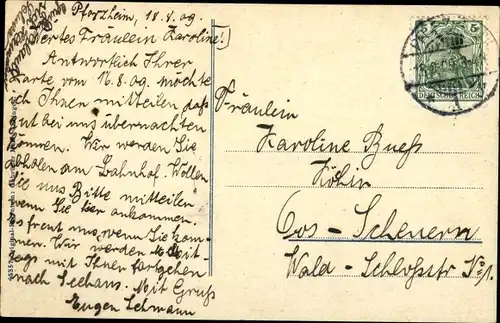 Pforzheim, 18.8.09.
Wertes Fräulein Karoline!
Antwortlich Ihrer
Karte vom 16.8.09 möchte
ich Ihnen mitteilen daß
gut bei uns übernachten
können. Wir werden Sie
abholen am Bahnhof. Wollen
Sie uns Bitte mitteilen
wenn Sie hier ankommen.
Es freut uns, wenn Sie kom-
men. Wir werden Mit-
tags mit Ihnen fortgehen
nach Seehaus. Mit Gruß
Eugen Lehmann
Fräulein
Karoline Bueß
Köhin
Oos-Scheuern
Wald-Schloßstr No 1.
5
DEUTSCHES REICH